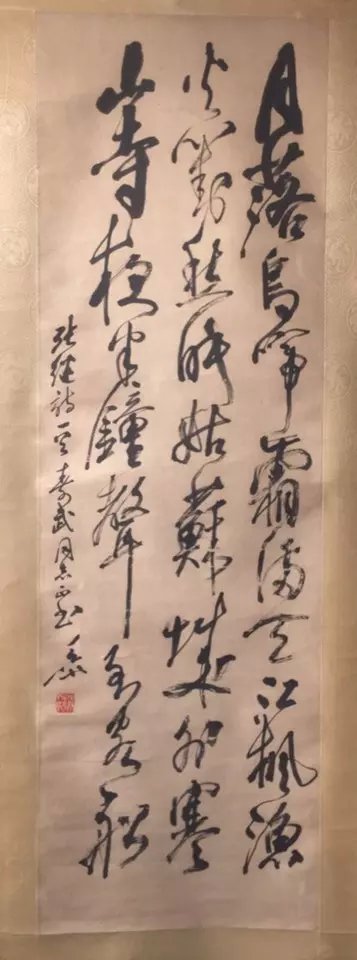 月落烏啼霜滿天江楓漁
火對愁眠姑蘇城外寒
山寺夜半鐘聲到客船
张继诗一首寿武同志正